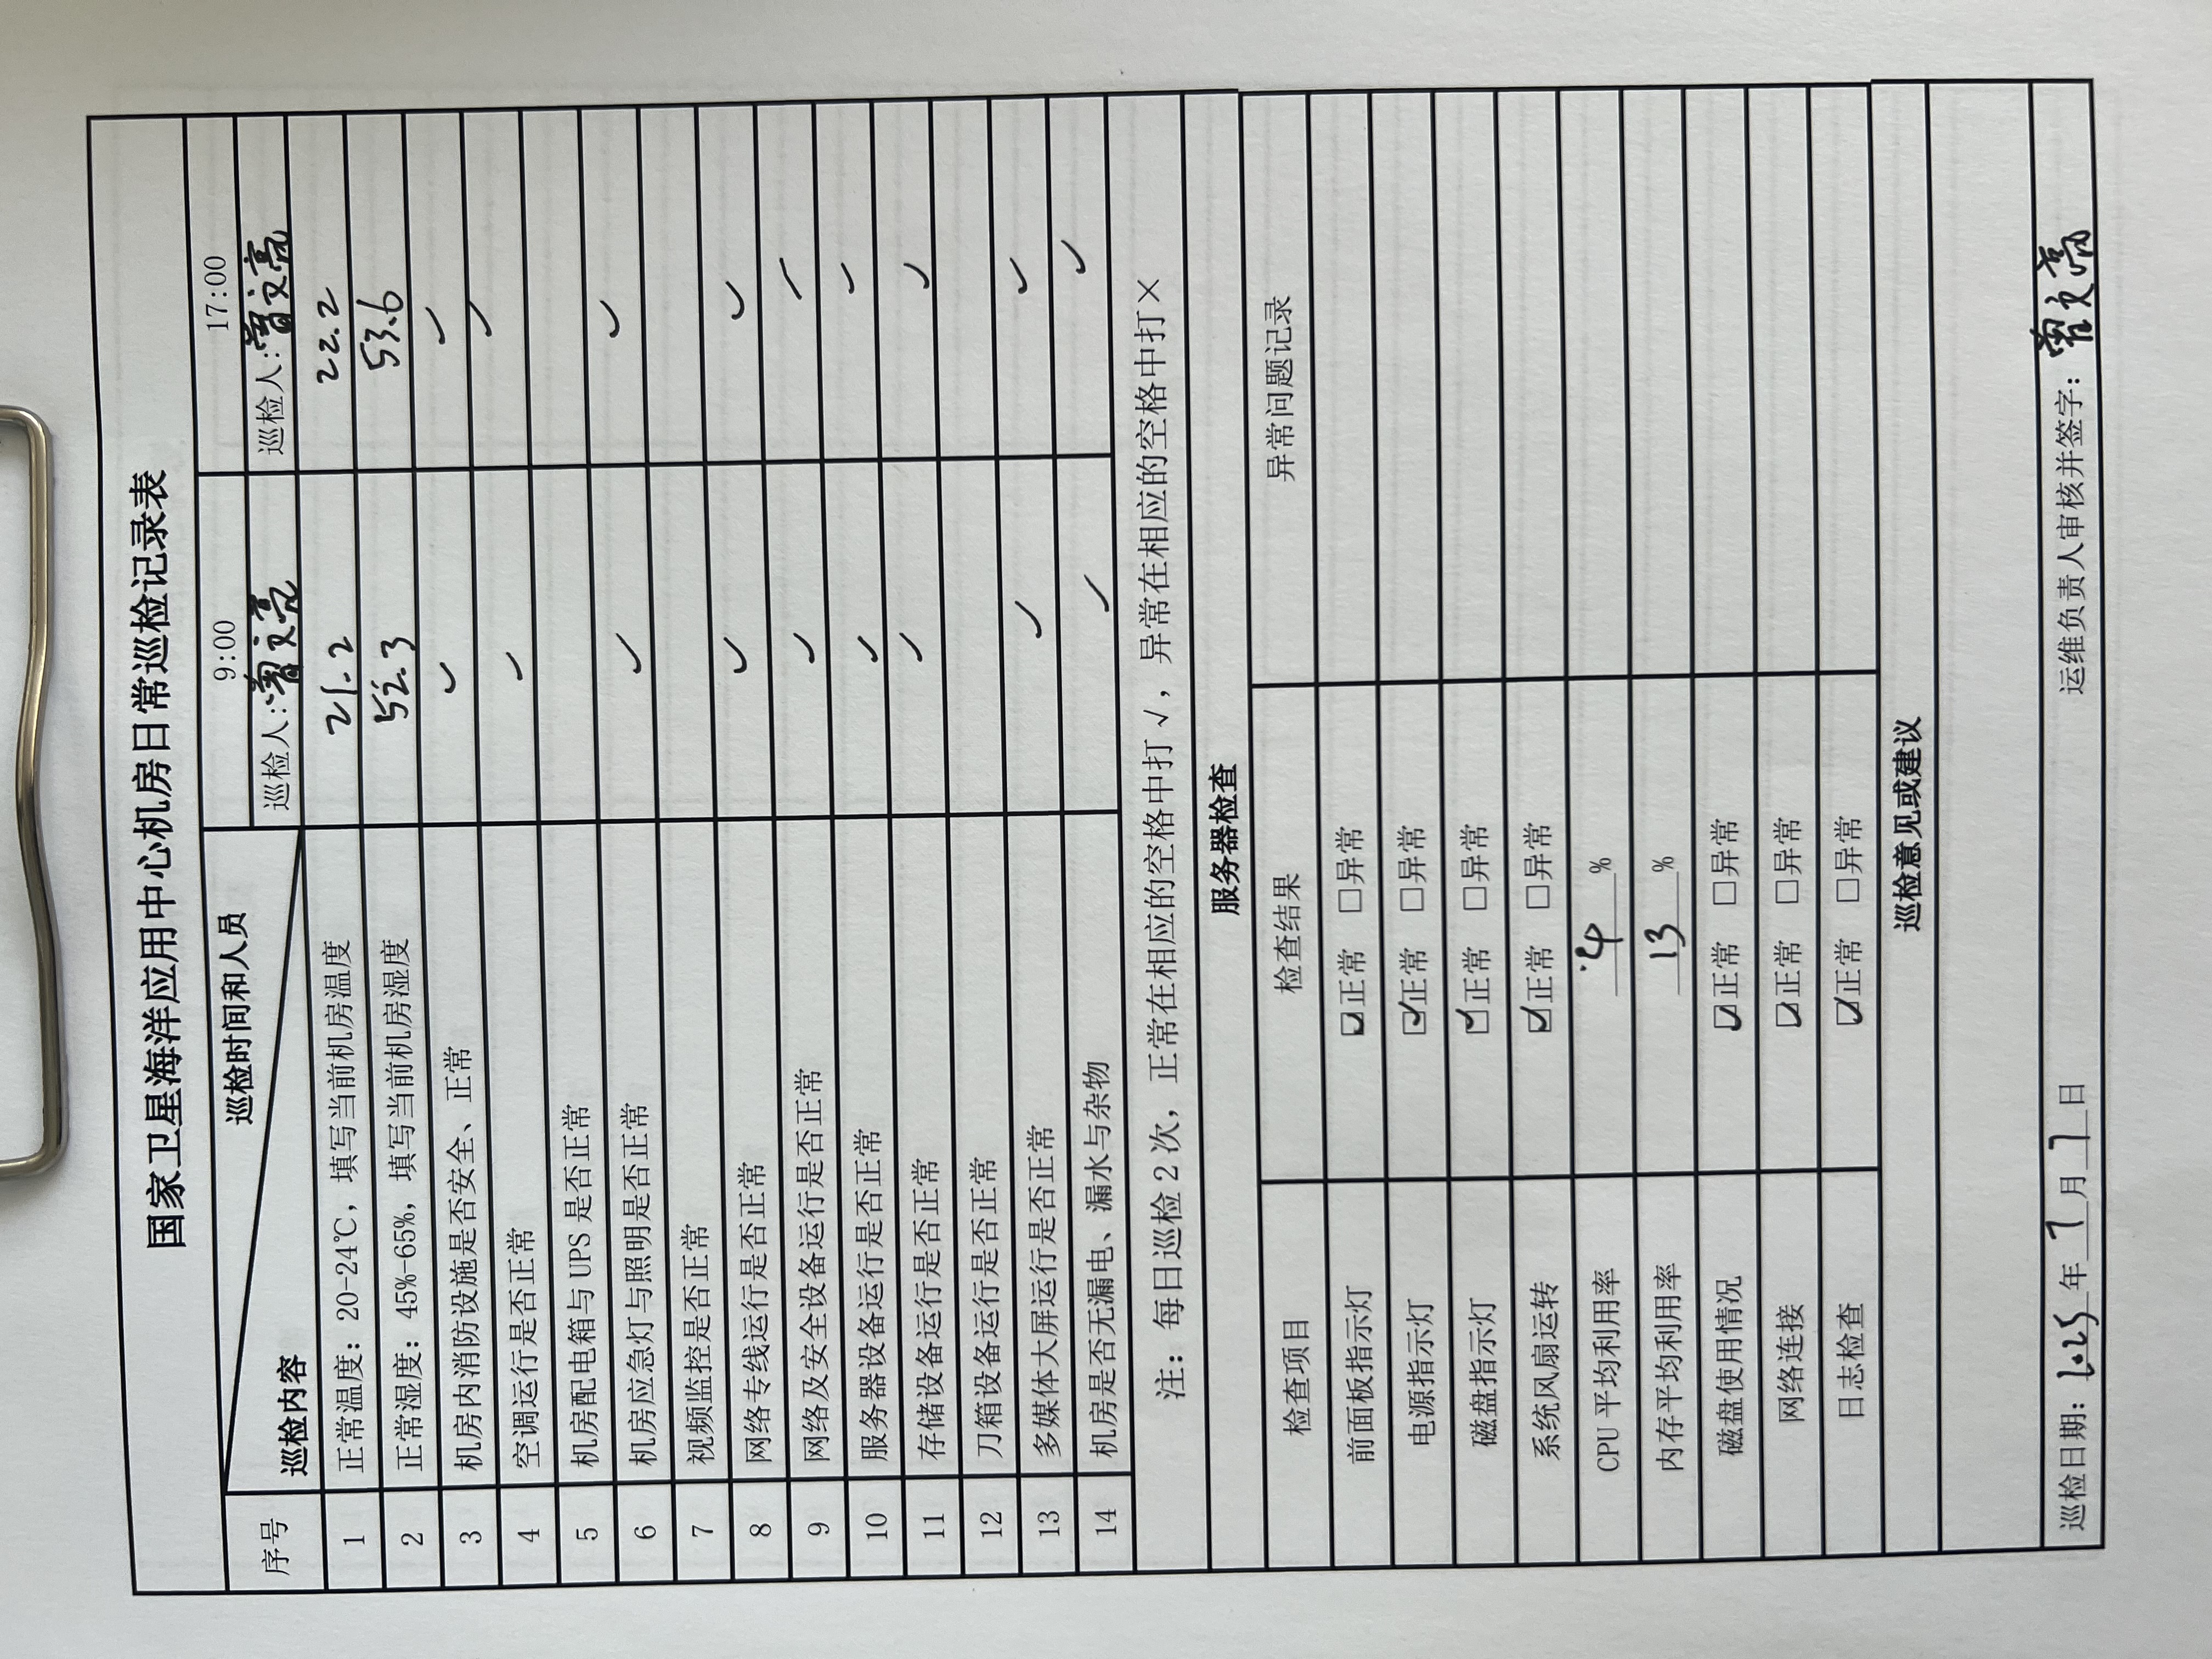 国家卫星海洋应用中心机房日常巡检记录表
序号 巡检内容 巡检时间和人员 9:00 17:00
巡检人:曾文亮 巡检人:曾文亮
1 正常温度：20-24℃，填写当前机房温度 21.2 22.2
2 正常湿度：45%-65%，填写当前机房湿度 52.3 53.6
3 机房内消防设施是否安全、正常 ✓ ✓
4 空调运行是否正常 ✓ ✓
5 机房配电箱与 UPS 是否正常
6 机房应急灯与照明是否正常 ✓ ✓
7 视频监控是否正常
8 网络专线运行是否正常 ✓ ✓
9 网络及安全设备运行是否正常 ✓ ✓
10 服务器设备运行是否正常 ✓ ✓
11 存储设备运行是否正常 ✓ ✓
12 刀箱设备运行是否正常
13 多媒体大屏运行是否正常 ✓ ✓
14 机房是否无漏电、漏水与杂物 ✓ ✓
注：每日巡检 2 次，正常在相应的空格中打 √，异常在相应的空格中打×
服务器检查
检查项目 检查结果 异常问题记录
前面板指示灯 ☑正常 □异常
电源指示灯 ☑正常 □异常
磁盘指示灯 ☑正常 □异常
系统风扇运转 ☑正常 □异常
CPU 平均利用率 4 %
内存平均利用率 13 %
磁盘使用情况 ☑正常 □异常
网络连接 ☑正常 □异常
日志检查 ☑正常 □异常
巡检意见或建议
巡检日期：2025年7月7日 运维负责人审核并签字：曾文亮